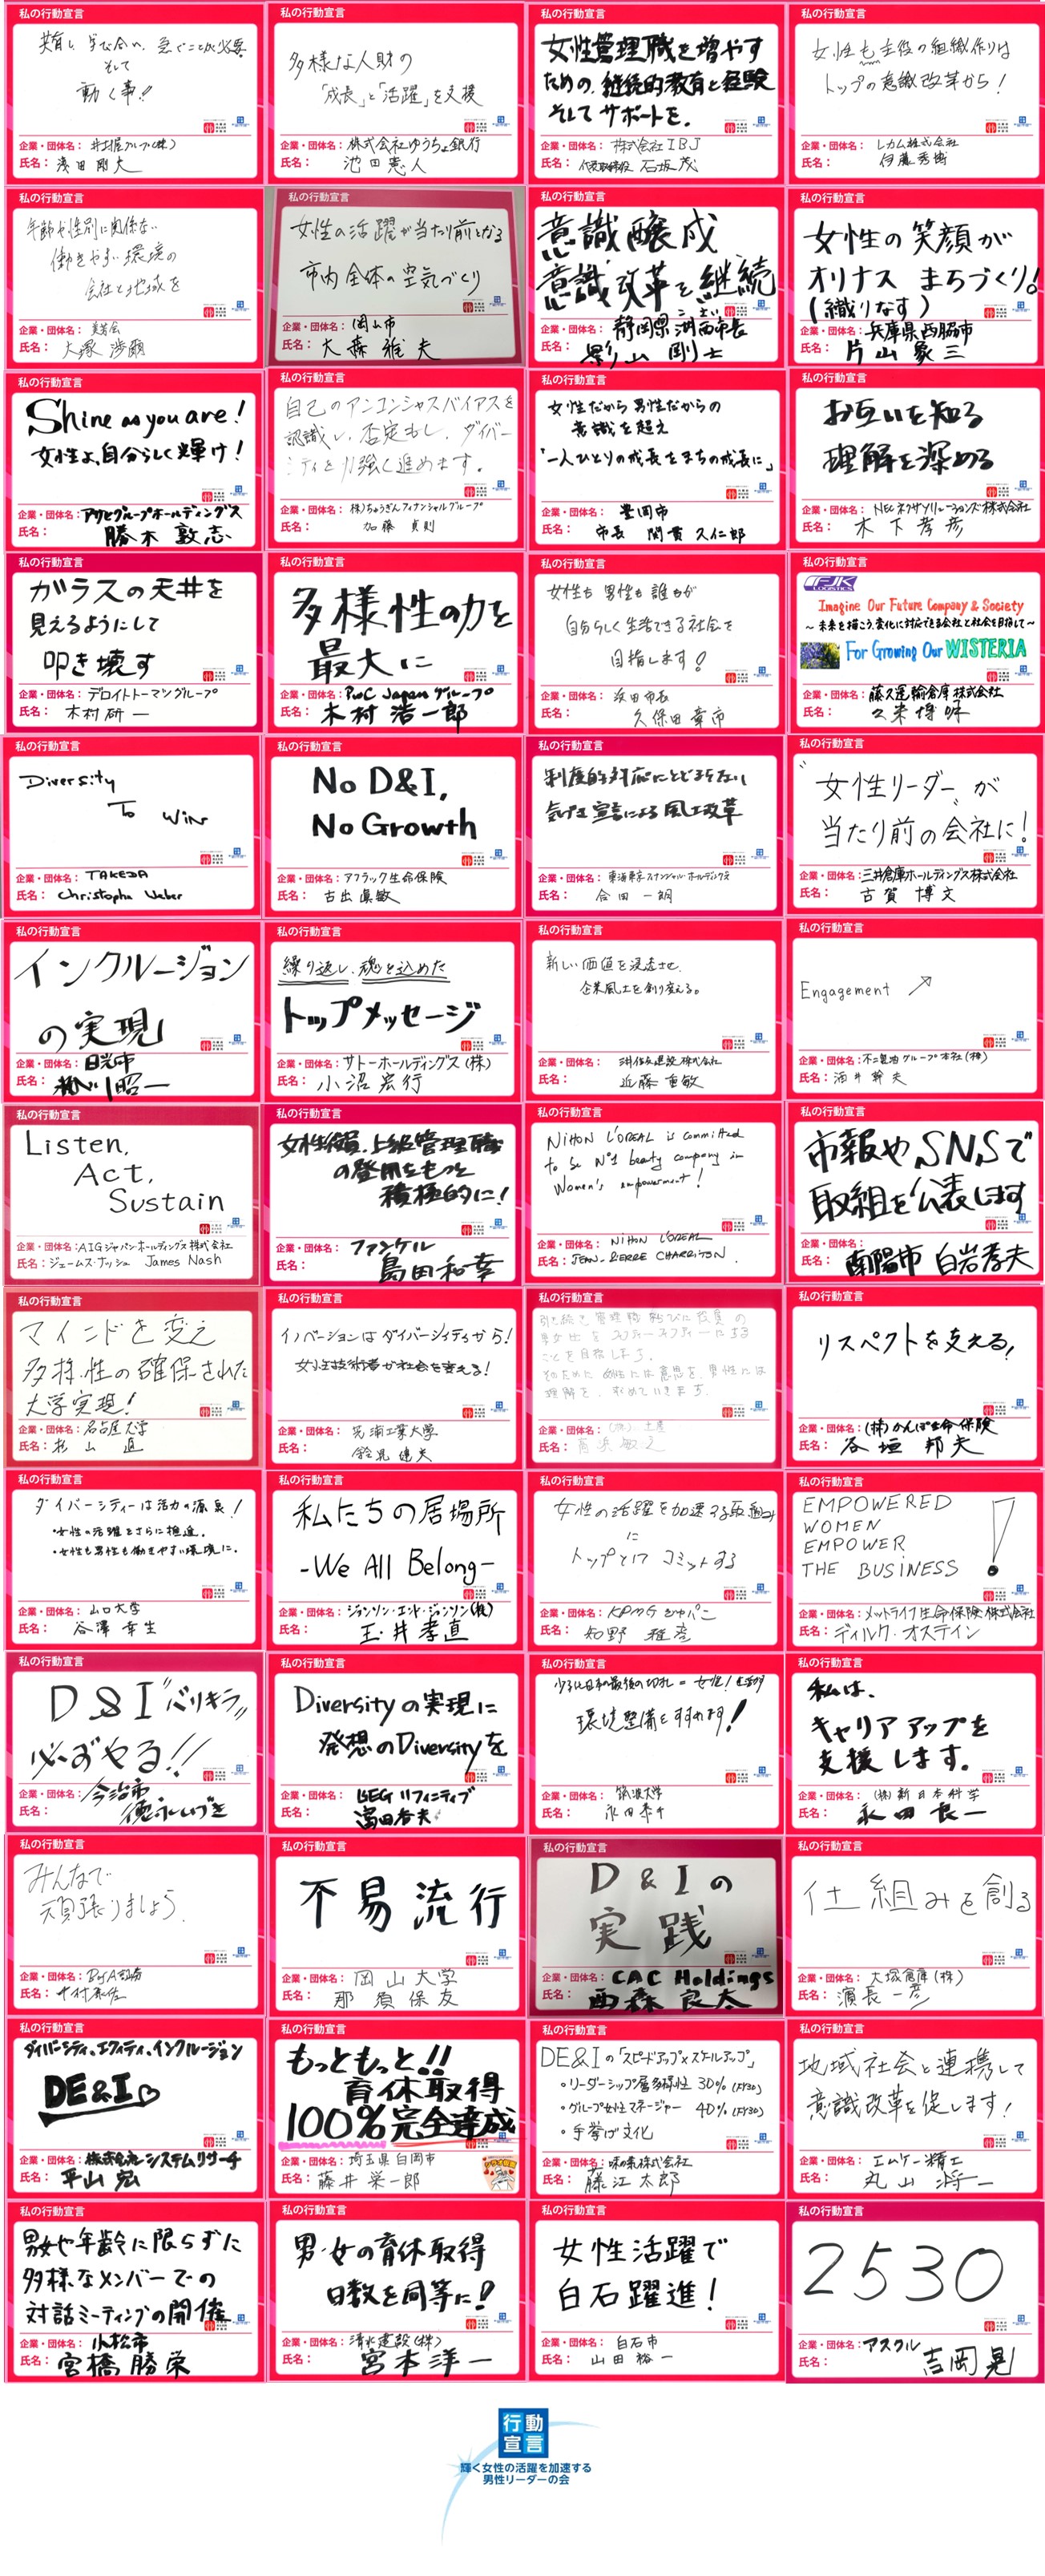 私の行動宣言
共有し 学び合い、急ぐことが必要。
そして
動く事!!
企業・団体名：
氏名：
私の行動宣言
多様な人財の
「成長」と「活躍」を支援
企業・団体名：株式会社ゆうちょ銀行
氏名：池田憲人
私の行動宣言
女性管理職を増やす
ための、継続的教育と経験
そしてサポートを。
企業・団体名：株式会社IBJ
氏名：代表取締役 石坂茂
私の行動宣言
女性も主役の組織作りは
トップの意識改革から！
企業・団体名：レカム株式会社
氏名：伊藤秀博
私の行動宣言
年齢や性別に関係ない
働きやすい環境の
会社と地域を
企業・団体名：
氏名：大塚
私の行動宣言
女性の活躍が当たり前となる
市内全体の空気づくり
企業・団体名：岡山市
氏名：大森雅夫
私の行動宣言
意識醸成
意識改革を継続
企業・団体名：静岡県湖西市長
こさい
氏名：影山剛士
私の行動宣言
女性の笑顔が
オリナス まちづくり！
（織りなす）
企業・団体名：兵庫県西脇市
氏名：片山象三
私の行動宣言
Shine as you are!
女性よ、自分らしく輝け！
企業・団体名：アサヒグループホールディングス
氏名：勝木敦志
私の行動宣言
自己のアンコンシャスバイアスを
認識し、否定もし、ダイバー
シティを力強く進めます。
企業・団体名：(株)ちゅうぎんフィナンシャルグループ
氏名：加藤貞則
私の行動宣言
女性だから男性だからの
意識を超え
「一人ひとりの成長をまちの成長に」
企業・団体名：豊岡市
氏名：市長 関貫久仁郎
私の行動宣言
お互いを知る
理解を深める
企業・団体名：NECネクサソリューションズ株式会社
氏名：木下孝彦
私の行動宣言
ガラスの天井を
見えるようにして
叩き壊す
企業・団体名：デロイトトーマツグループ
氏名：木村研一
私の行動宣言
多様性の力を
最大に
企業・団体名：PwC Japanグループ
氏名：木村浩一郎
私の行動宣言
女性も男性も誰もが
自分らしく生活できる社会を
目指します！
企業・団体名：浜田市長
氏名：久保田章市
私の行動宣言
FJK
LOGISTICS
Imagine Our Future Company & Society
～未来を描こう、変化に対応できる会社と社会を目指して～
For Growing Our WISTERIA
企業・団体名：藤久運輸倉庫株式会社
氏名：久米博明
私の行動宣言
Diversity
To Win
企業・団体名：TAKEDA
氏名：Christophe Weber
私の行動宣言
No D&I,
No Growth
企業・団体名：アフラック生命保険
氏名：古出眞敏
私の行動宣言
制度的対応にとどまらない
気づき宣言による風土改革
企業・団体名：東海東京フィナンシャル・ホールディングス
氏名：合田一朗
私の行動宣言
"女性リーダー"が
当たり前の会社に！
企業・団体名：三井倉庫ホールディングス株式会社
氏名：古賀博文
私の行動宣言
インクルージョン
の実現
企業・団体名：日光市
氏名：粉川昭一
私の行動宣言
繰り返し、魂を込めた
トップメッセージ
企業・団体名：サトーホールディングス(株)
氏名：小沼宏行
私の行動宣言
新しい価値を浸透させ、
企業風土を創り変える。
企業・団体名：三井住友建設株式会社
氏名：近藤重敏
私の行動宣言
Engagement ↗
企業・団体名：不二製油グループ本社(株)
氏名：酒井幹夫
私の行動宣言
Listen,
Act,
Sustain
企業・団体名：AIGジャパン・ホールディングス株式会社
氏名：ジェームス・ナッシュ James Nash
私の行動宣言
女性役員、上級管理職
の登用をもっと
積極的に！
企業・団体名：ファンケル
氏名：島田和幸
私の行動宣言
NIHON L'OREAL is committed
to be N°1 beauty company in
Women's empowerment!
企業・団体名：NIHON L'OREAL
氏名：JEAN-PIERRE CHARRITON
私の行動宣言
市報やSNSで
取組を公表します
企業・団体名：
氏名：南陽市 白岩孝夫
私の行動宣言
マインドを変え
多様性の確保された
大学実現！
企業・団体名：名古屋大学
氏名：杉山直
私の行動宣言
イノベーションはダイバーシィティから！
女性技術者が社会を変える！
企業・団体名：芝浦工業大学
氏名：鈴見健夫
私の行動宣言
引き続き管理職並びに役員の
男女比をフィフティーフィフティーにする
ことを目指します。
そのために女性には意思を、男性には
理解を、求めていきます。
企業・団体名：
氏名：
私の行動宣言
リスペクトを支える！
企業・団体名：(株)かんぽ生命保険
氏名：谷垣邦夫
私の行動宣言
ダイバーシティーは活力の源泉！
・女性の活躍をさらに推進。
・女性も男性も働きやすい環境に。
企業・団体名：山口大学
氏名：谷澤幸生
私の行動宣言
私たちの居場所
-We All Belong-
企業・団体名：ジョンソン・エンド・ジョンソン(株)
氏名：玉井孝直
私の行動宣言
女性の活躍を加速する取組み
に
トップとして コミットする
企業・団体名：KPMGジャパン
氏名：知野雅彦
私の行動宣言
EMPOWERED
WOMEN
EMPOWER
THE BUSINESS !
企業・団体名：メットライフ生命保険株式会社
氏名：ディルク・オステイン
私の行動宣言
D&I"バリキラ"
必ずやる!!
企業・団体名：今治市
氏名：徳永しげき
私の行動宣言
Diversityの実現に
発想のDiversityを
企業・団体名：BEGIリフィニティブ
氏名：富田秀夫
私の行動宣言
少子化日本の最後の切札＝女性！を活かす
環境整備をすすめます！
企業・団体名：筑波大学
氏名：永田恭介
私の行動宣言
私は、
キャリアアップを
支援します。
企業・団体名：(株)新日本科学
氏名：永田良一
私の行動宣言
みんなで
頑張りましょう。
企業・団体名：
氏名：
私の行動宣言
不易流行
企業・団体名：岡山大学
氏名：那須保友
私の行動宣言
D&Iの
実践
企業・団体名：CAC Holdings
氏名：西森良太
私の行動宣言
仕組みを創る
企業・団体名：大塚倉庫(株)
氏名：濵長一彦
私の行動宣言
ダイバーシティ、エクイティ、インクルージョン
DE&I♡
企業・団体名：株式会社システムリサーチ
氏名：平山宏
私の行動宣言
もっともっと!!
育休取得
100%完全達成
企業・団体名：埼玉県白岡市
氏名：藤井栄一郎
私の行動宣言
DE&Iの「スピードアップ×スケールアップ」
・リーダーシップ層多様性 30% (FY30)
・グループ女性マネージャー 40% (FY30)
・手挙げ文化
企業・団体名：味の素株式会社
氏名：藤江太郎
私の行動宣言
地域社会と連携して
意識改革を促します！
企業・団体名：エムケー精工
氏名：丸山将一
私の行動宣言
男女や年齢に限らずに
多様なメンバーでの
対話ミーティングの開催
企業・団体名：小松市
氏名：宮橋勝栄
私の行動宣言
男・女の育休取得
日数を同等に！
企業・団体名：清水建設(株)
氏名：宮本洋一
私の行動宣言
女性活躍で
白石躍進！
企業・団体名：白石市
氏名：山田裕一
私の行動宣言
2530
企業・団体名：アスクル
氏名：吉岡晃
行動
宣言
輝く女性の活躍を加速する
男性リーダーの会